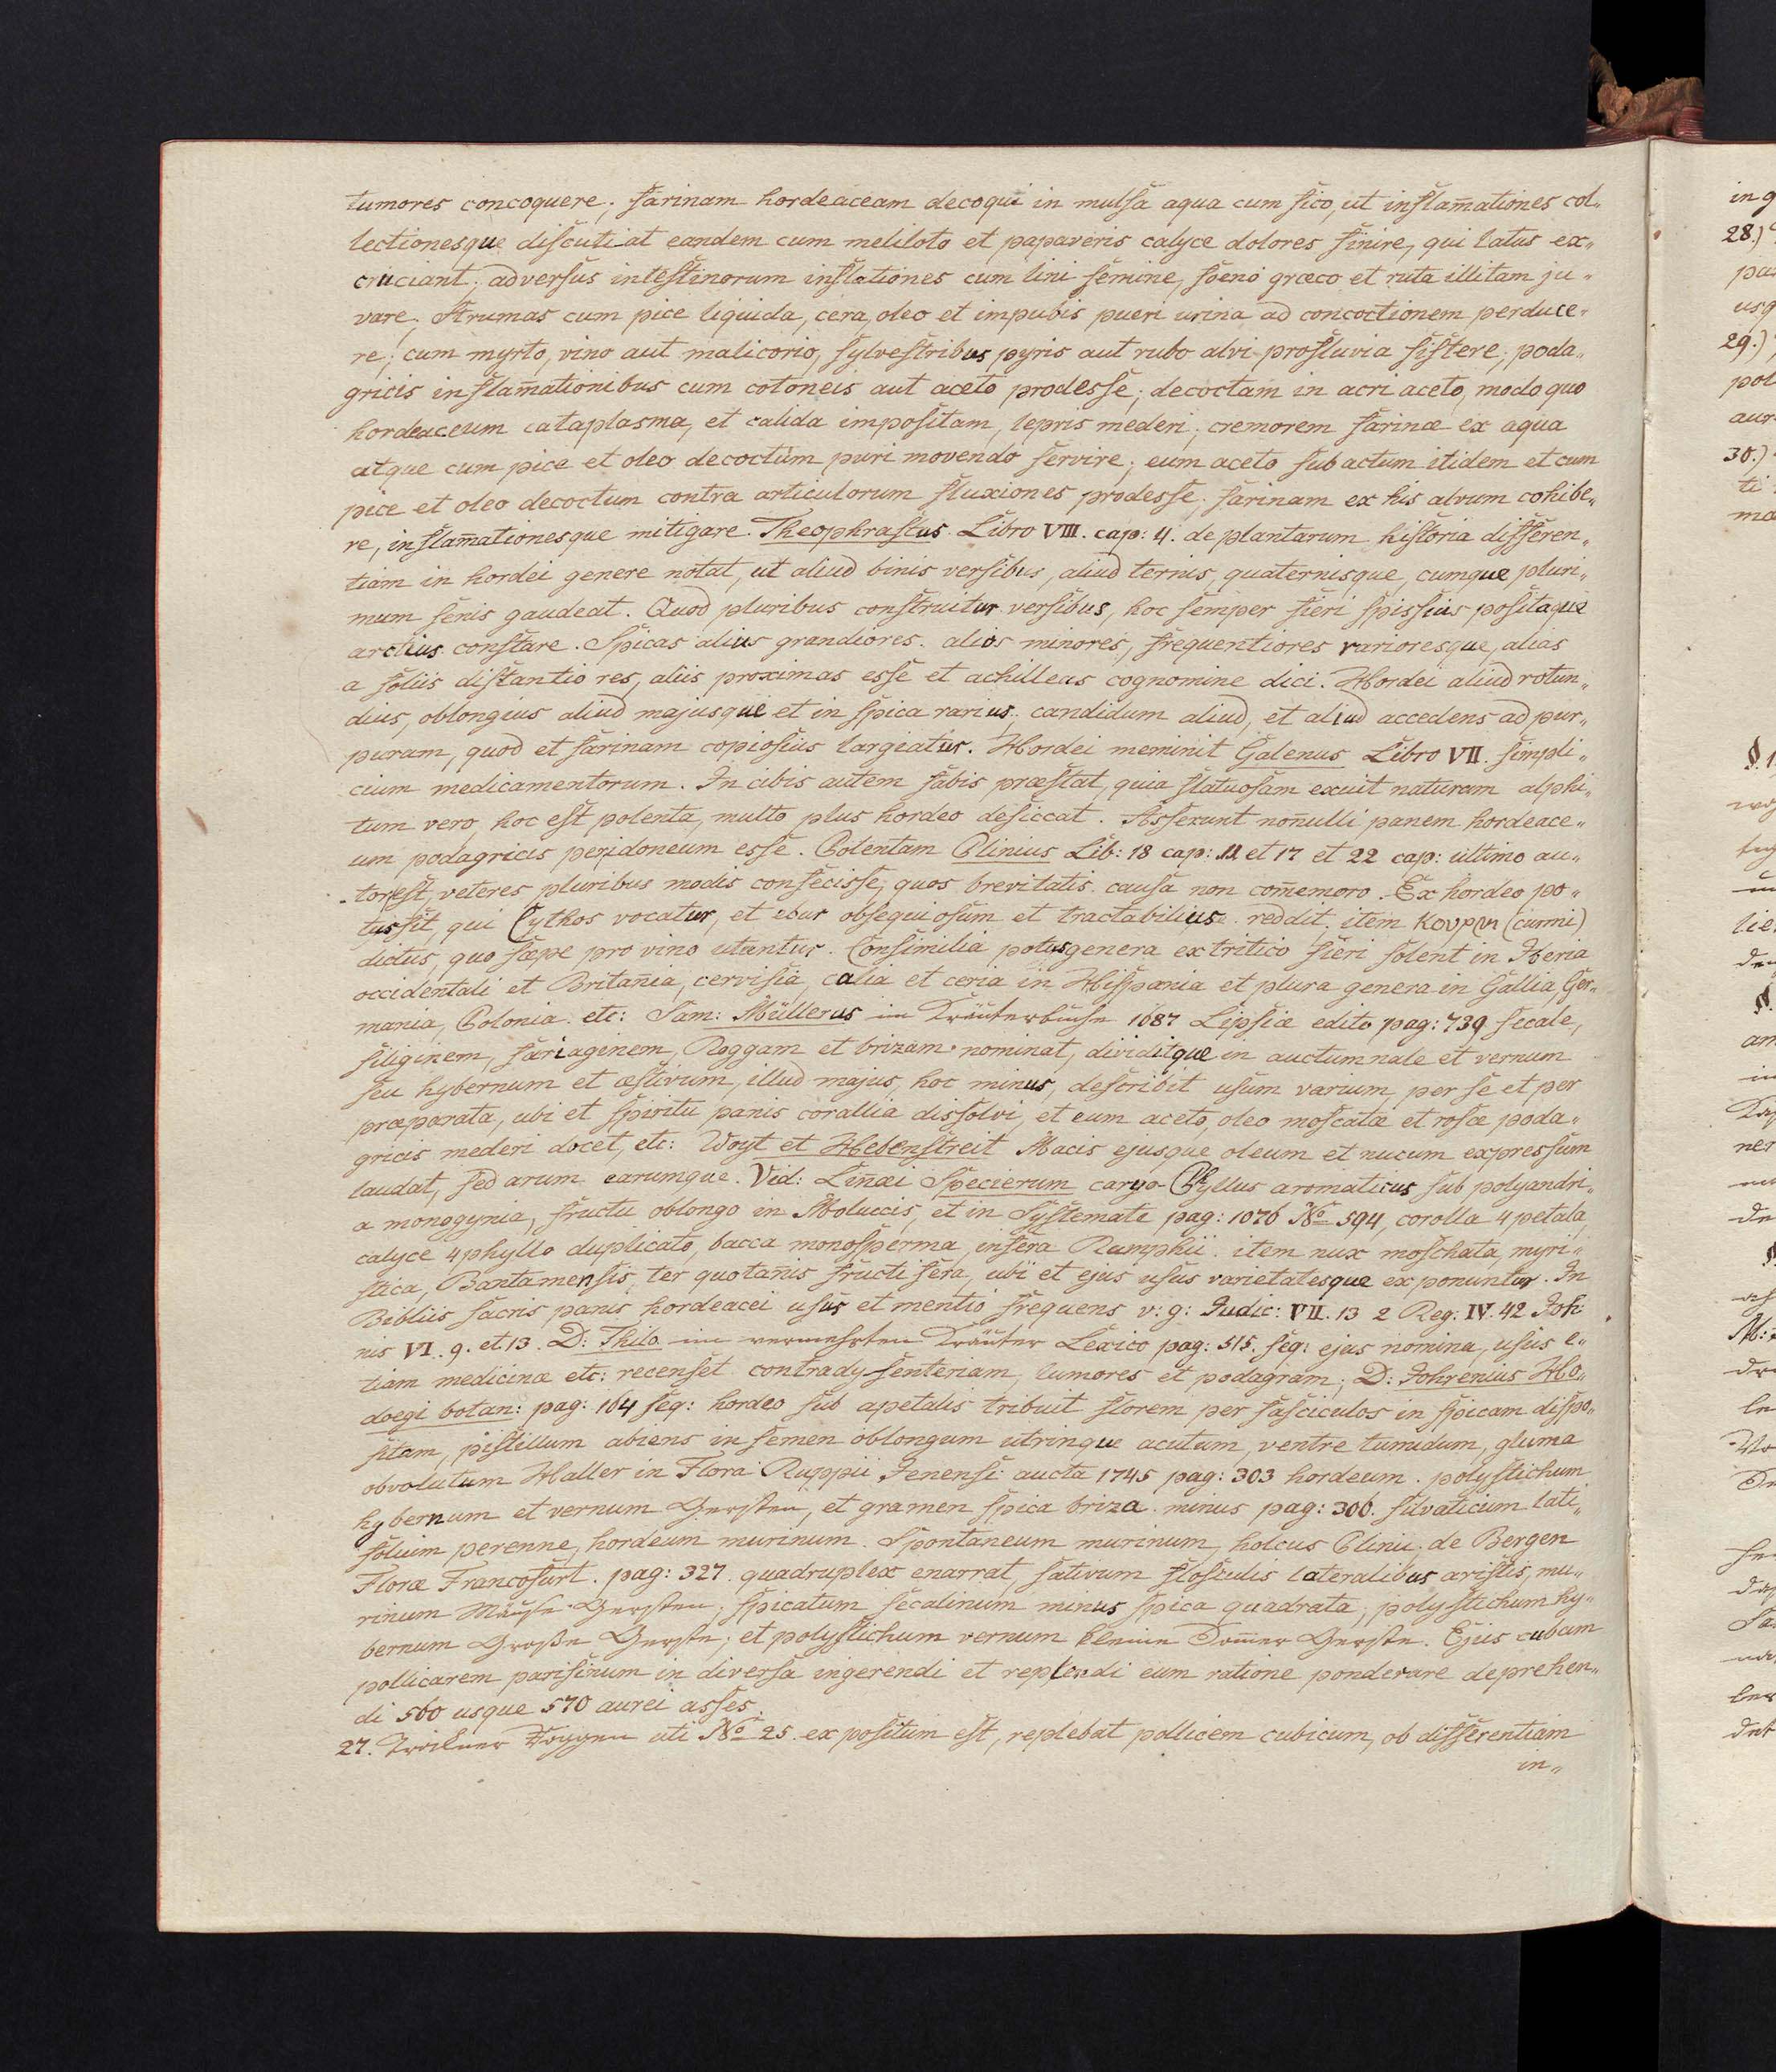 tumores concoquere; farinam hordeaceam decoqui in mulsa aqua cum fico, ut inflam̄ationes col„
lectionesque discutiat eandem cum meliloto et papaveris calyce dolores finire, qui latus ex„
cruciant; adversus intestinorum inflationes cum lini semine, foeno græco et ruta illitam ju„
vare; Strumas cum pice liquida, cera, oleo et impubis pueri urina ad concoctionem perduce„
re; cum myrto, vino aut malicorio, sylvestribus pyris aut rubo alvi profluvia sistere; poda„
gricis inflam̄ationibus cum cotoneis aut aceto prodesse; decoctam in acri aceto, modo quo
hordeaceum cataplasma, et calida impositam, lepris mederi; cremorem farinæ ex aqua
atque cum pice et oleo decoctum puri movendo servire; eum aceto subactum itidem et cum
pice et oleo decoctum contra articulorum fluxiones prodesse; farinam ex his alvum cohibe„
re, inflam̄ationesque mitigare. Theophrastus Libro VIII. cap: 4. de plantarum historia differen„
tiam in hordei genere notat, ut aliud binis versibus, aliud ternis, quaternisque, cumque pluri„
mum senis gaudeat. Quod pluribus construitur versibus, hoc semper fieri spissius positaque
arctius constare. Spicas alius grandiores. alios minores, frequentiores varioresque, alias
a foliis distantiores, aliis proximas esse et achilleas cognomine dici. Hordei aliud rotun„
dius, oblongius aliud majusque et in spica rarius; candidum aliud, et aliud accedens ad pur„
puram, quod et farinam copiosius largiatur. Hordei meminit Galenus Libro VII. simpli„
cium medicamentorum. In cibis autem fabis præstat, quia flatuosam exuit naturam alphi„
tum vero, hoc est polenta, multo plus hordeo desiccat. Asserunt non̄ulli panem hordeace„
um podagricis peridoneum esse. Polentam Plinius Lib: 18 cap: 11 et 17 et 22 cap: ultimo au„
tor est, veteres pluribus modis confecisse, quos brevitatis causa non com̄emoro. Ex hordeo po„
tus fit, qui Cythos vocatur, et ebur obsequiosum et tractabilius reddit. item κουρμι (curmi)
dictus, quo sæpe pro vino utantur. Consimilia potus genera ex tritico fieri solent in Iberia
occidentali et Britan̄ia, cervisia, calia et ceria in Hispania et plura genera in Gallia, Ger„
mania, Polonia etc: Sam: Müllerus im Kräuterbuche 1687 Lipsiæ edito pag: 739 secale,
siliginem, fariaginem, Roggam et brizam nominat, dividitque in auctumnale et vernum
seu hybernum et æstivum, illud majus, hoc minus, describit usum varium, per se et per
præparata, ubi et spiritu panis corallia dissolvi, et cum aceto, oleo moscatæ et rosæ poda„
gricis mederi docet, etc: Woyt et Hebenstreit Macis ejusque oleum et nucum expressum
laudat, sed arum earumque. Vid: Lin̄æi Specierum caryo Phyllus aromaticus sub polyandri„
a monogynia, fructu oblongo in Moluccis, et in Systemate pag: 1076 No 594, corolla 4 petala,
calyce 4 phyllo duplicato, bacca monosperma, infera Rumphii. item nux moschata, myri„
stica, Bantamensis, ter quotan̄is fructifera, ubi et ejus usus varietatesque exponuntur. In
Bibliis sacris panis hordeacei usus et mentio frequens v: g: Judic: VII. 13 2 Reg: IV. 42 Joh:
nis VI. 9. et 13. D: Thilo im vermehrten Kräuter Lexico pag: 515. seq: ejus nomina, usus e„
tiam medicinæ etc: recenset contra dysenteriam, tumores et podagram; D: Johrenius Ho„
doegi botan: pag: 164 seq: hordeo sub apetalis tribuit florem per fasciculos in spicam dispo„
sitam, pistillum abiens in semen oblongum utrinque acutum, ventre tumidum, gluma
obvolutum Haller in Flora Ruppii Jenensi aucta 1745 pag: 303 hordeum polystichum
hybernum et vernum Gersten, et gramen spica briza minus pag: 306. silvaticum lati„
folium perenne, hordeum murinum. Spontaneum murinum, holcus Plinii; de Bergen
Floræ Francofurt. pag: 327. quadruplex enarrat, sativum flosculis lateralibus aristis, mu„
rinum Mäuse Gersten; spicatum secalinum minus spica quadrata; polystichum hy„
bernum Große Gerste; et polystichum vernum kleine Som̄er Gerste. Ejus cubum
pollicarem parisinum in diversa ingerendi et replendi eum ratione ponderare deprehen„
di 560 usque 570 aurei asses.
27. Trockner Roggen uti No 25. expositum est, replebat pollicem cubicum, ob differentiam
in„